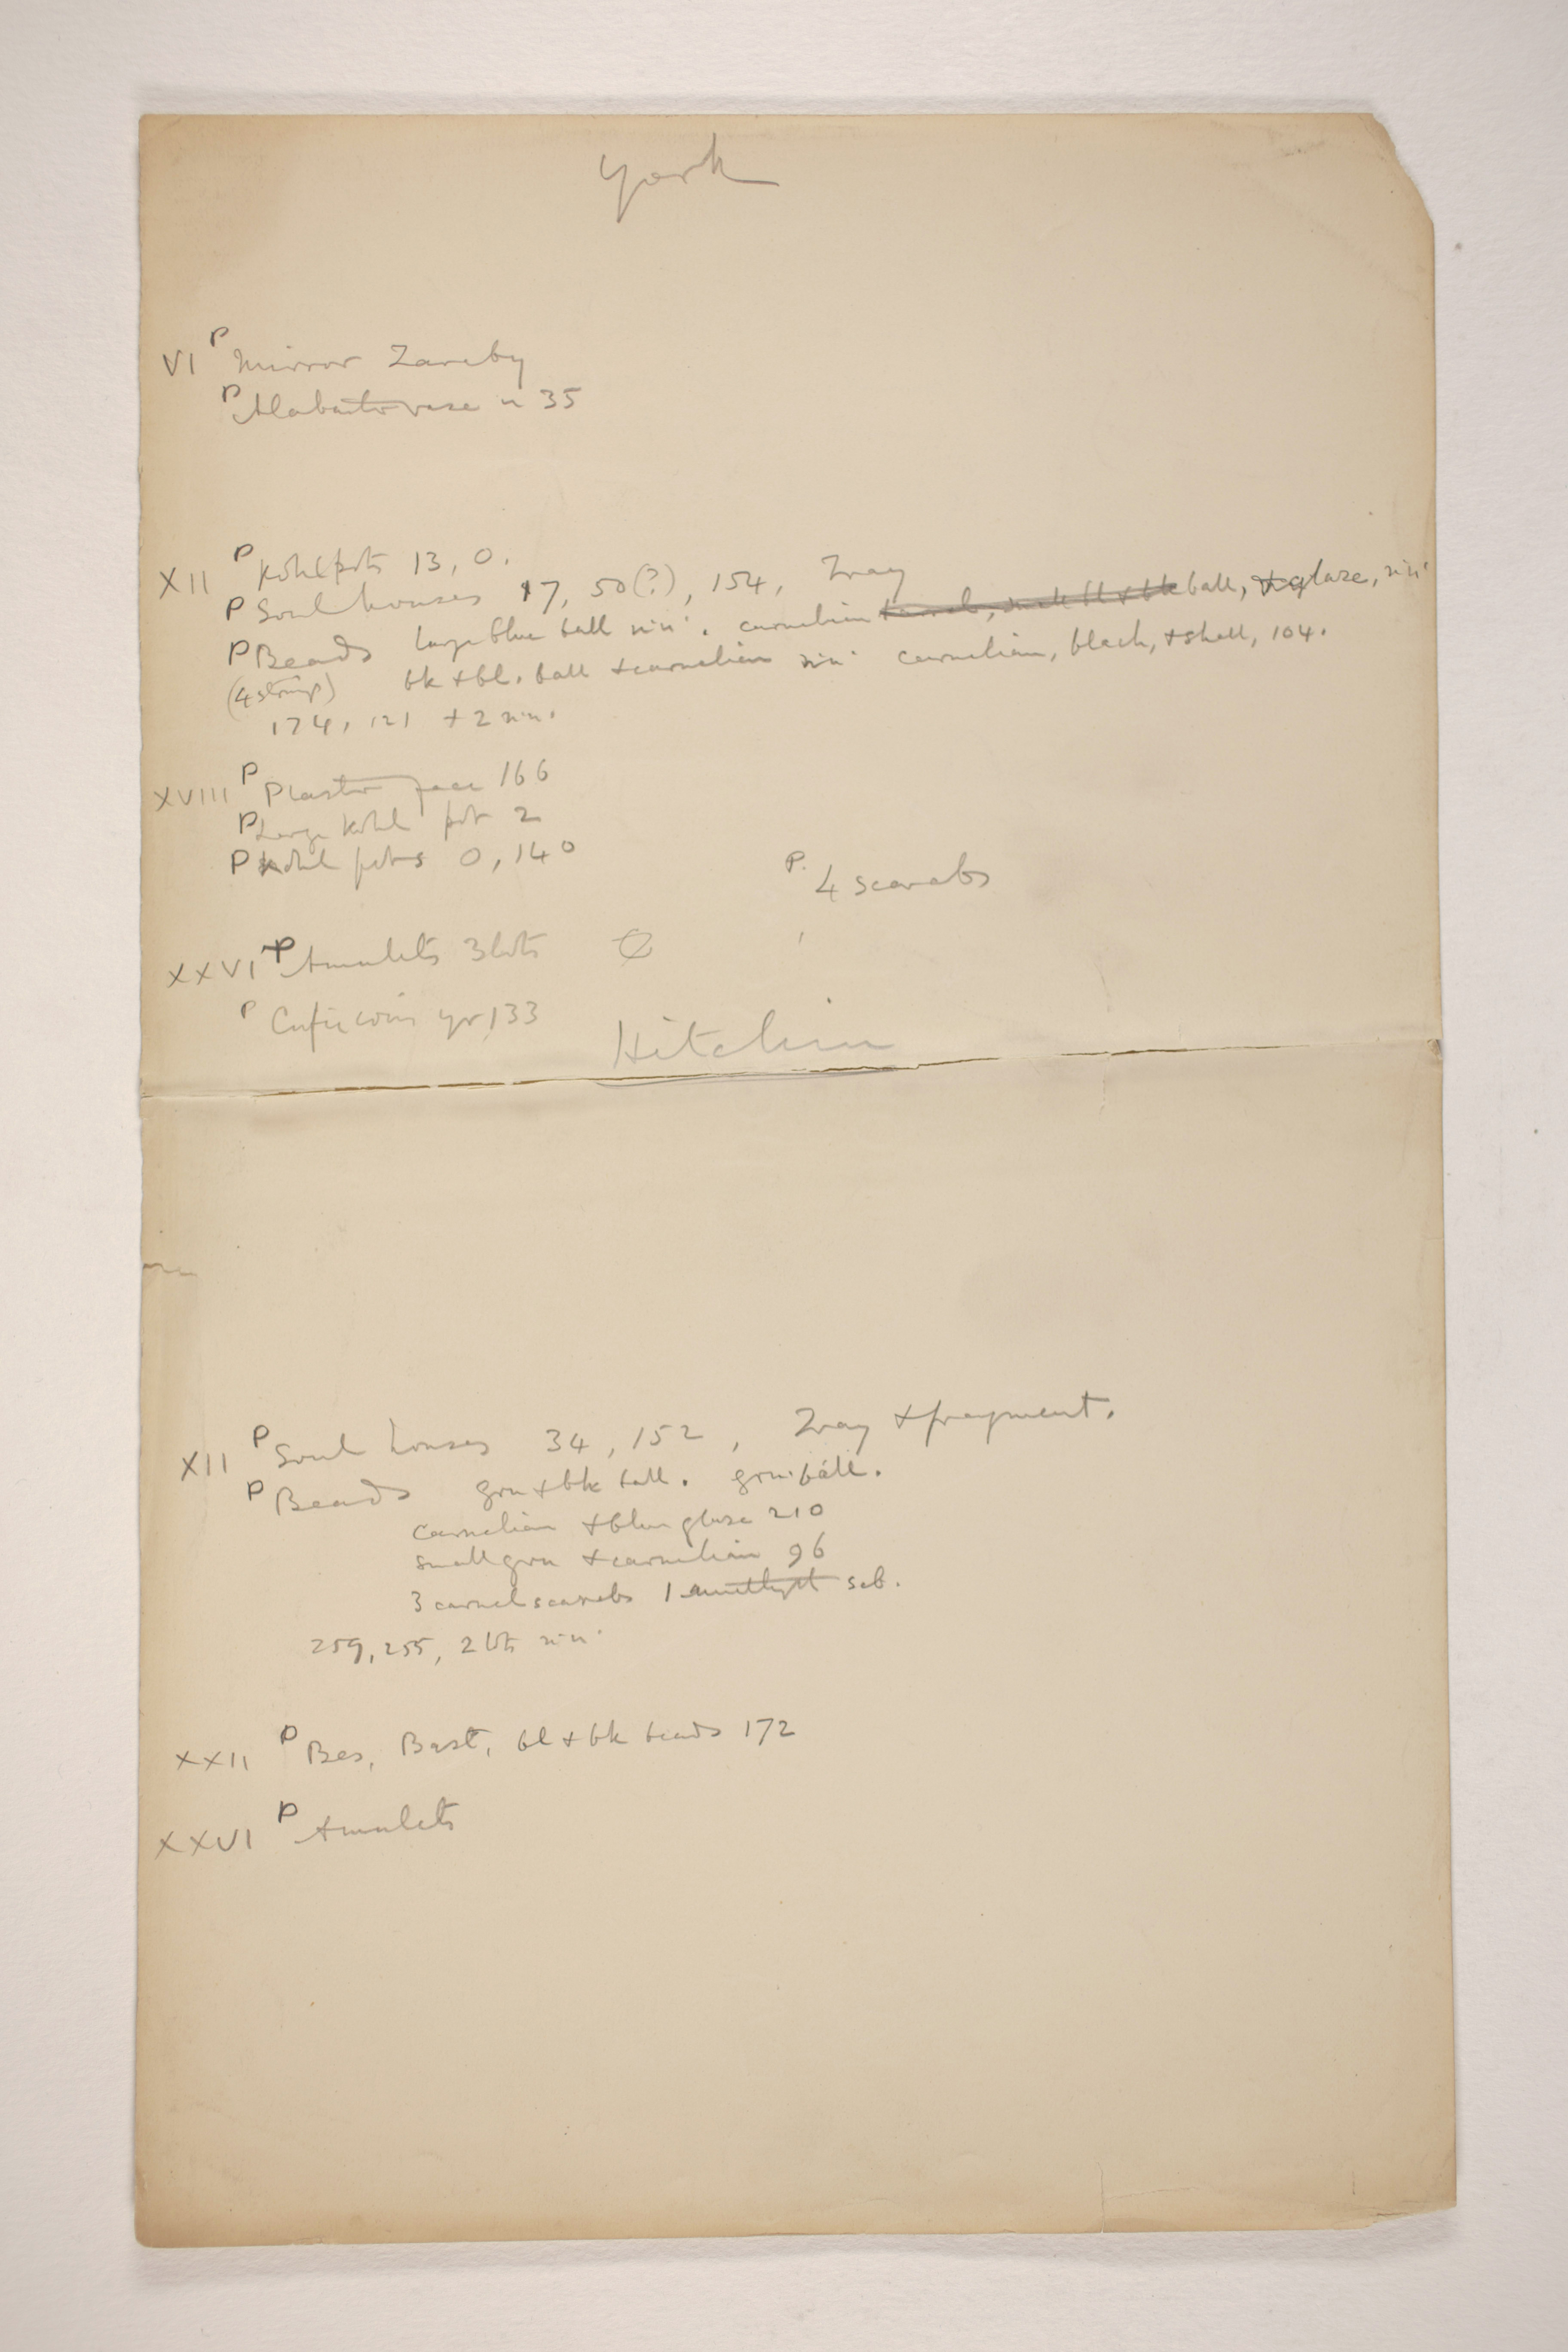 York
VI P Mirror Zaraby
P Alabaster vase n 35
XII P Kohl pots 13, 0.
P Soul houses 17, 50(?), 154, Zray
P Beads large blue ball nin. carnelian ball, + glaze, nin
(4 strings) bk + bl. ball + carnelian nin carnelian, black, + shell, 104.
174, 121 + 2 nin.
XVIII P Plaster face 166
P Large kohl pot 2
P Kohl pots 0, 140
P. 4 scarabs
XXVI P Amulets 3 lots
P Cufic coins yr 133
Hitchin
XII P Soul houses 34, 152, Zray + fragment.
P Beads grn + bk ball. grn ball.
Carnelian + blue glaze 210
small grn + carnelian 96
3 carnel scarabs 1 amethyst scb.
259, 255, 2 lots nin
XXII P Bes, Bast, bl + bk beads 172
XXVI P Amulets